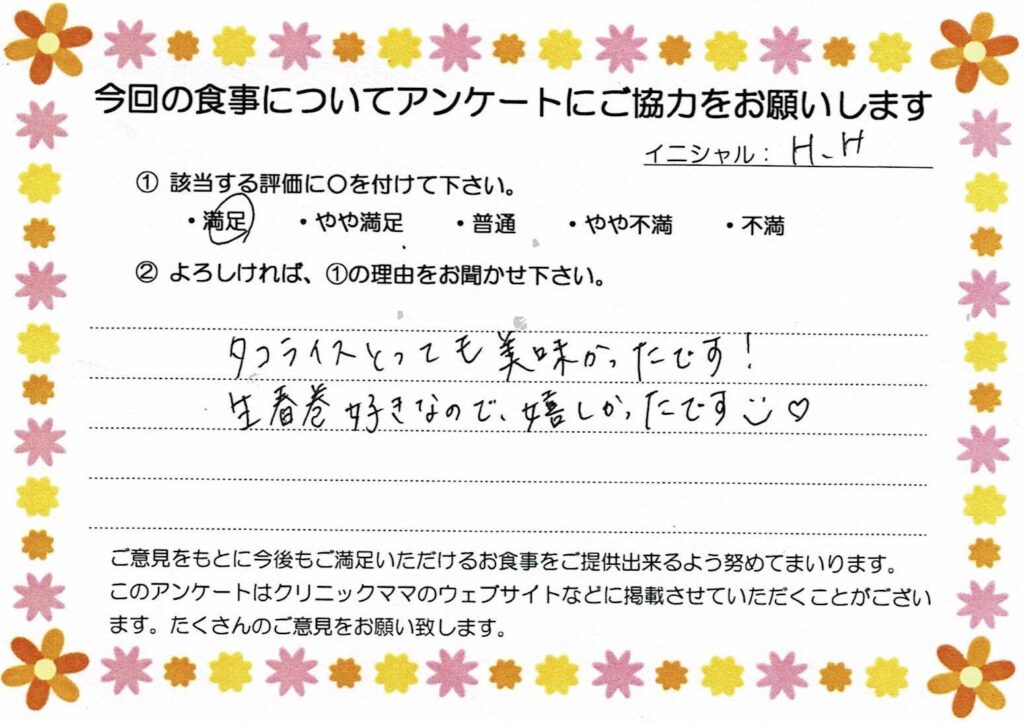 今回の食事についてアンケートにご協力をお願いします
イニシャル： H.H
① 該当する評価に〇を付けて下さい。
・満足 ・やや満足 ・普通 ・やや不満 ・不満
② よろしければ、①の理由をお聞かせ下さい。
タコライスとっても美味かったです！
生春巻好きなので、嬉しかったです
ご意見をもとに今後もご満足いただけるお食事をご提供出来るよう努めてまいります。
このアンケートはクリニックママのウェブサイトなどに掲載させていただくことがござい
ます。たくさんのご意見をお願い致します。